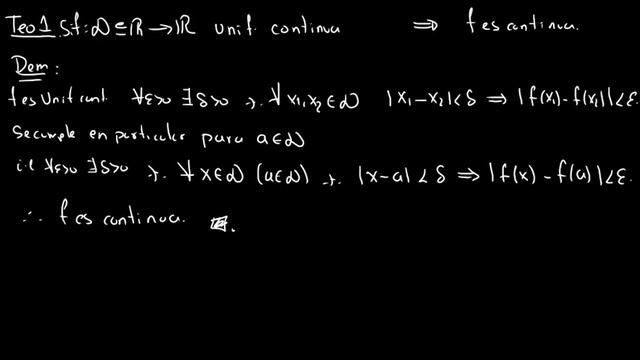 Teo 1 Si f: D ⊆ ℝ → ℝ unif. continua ⟹ f es continua.
Dem:
f es Unif cont. ∀ε>0 ∃δ>0 ∙∋. ∀ x₁,x₂ ∈ D |x₁-x₂| < δ ⟹ |f(x₁) - f(x₂)| < ε.
Se cumple en particular para a ∈ D
i.e ∀ε>0 ∃δ>0 ∙∋. ∀ x ∈ D (a ∈ D) ∙∋. |x-a| < δ ⟹ |f(x) - f(a)| < ε.
∴ f es continua.